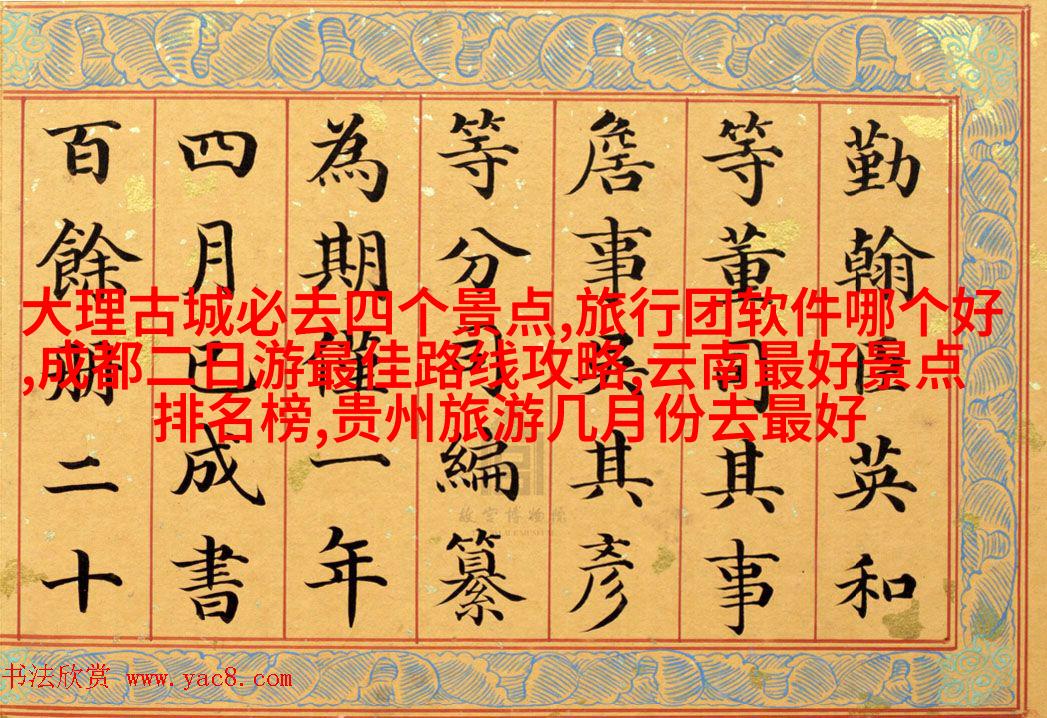 勤翰臣英和
等董司其事
詹事吳其彥
等分司編纂
為期僅一年
四月已成書
百餘冊二十
大理古城必去四个景点,旅行团软件哪个好
,成都二日游最佳路线攻略,云南最好景点
排名榜,贵州旅游几月份去最好
故宫博物院
书法欣赏 www.yac8.com